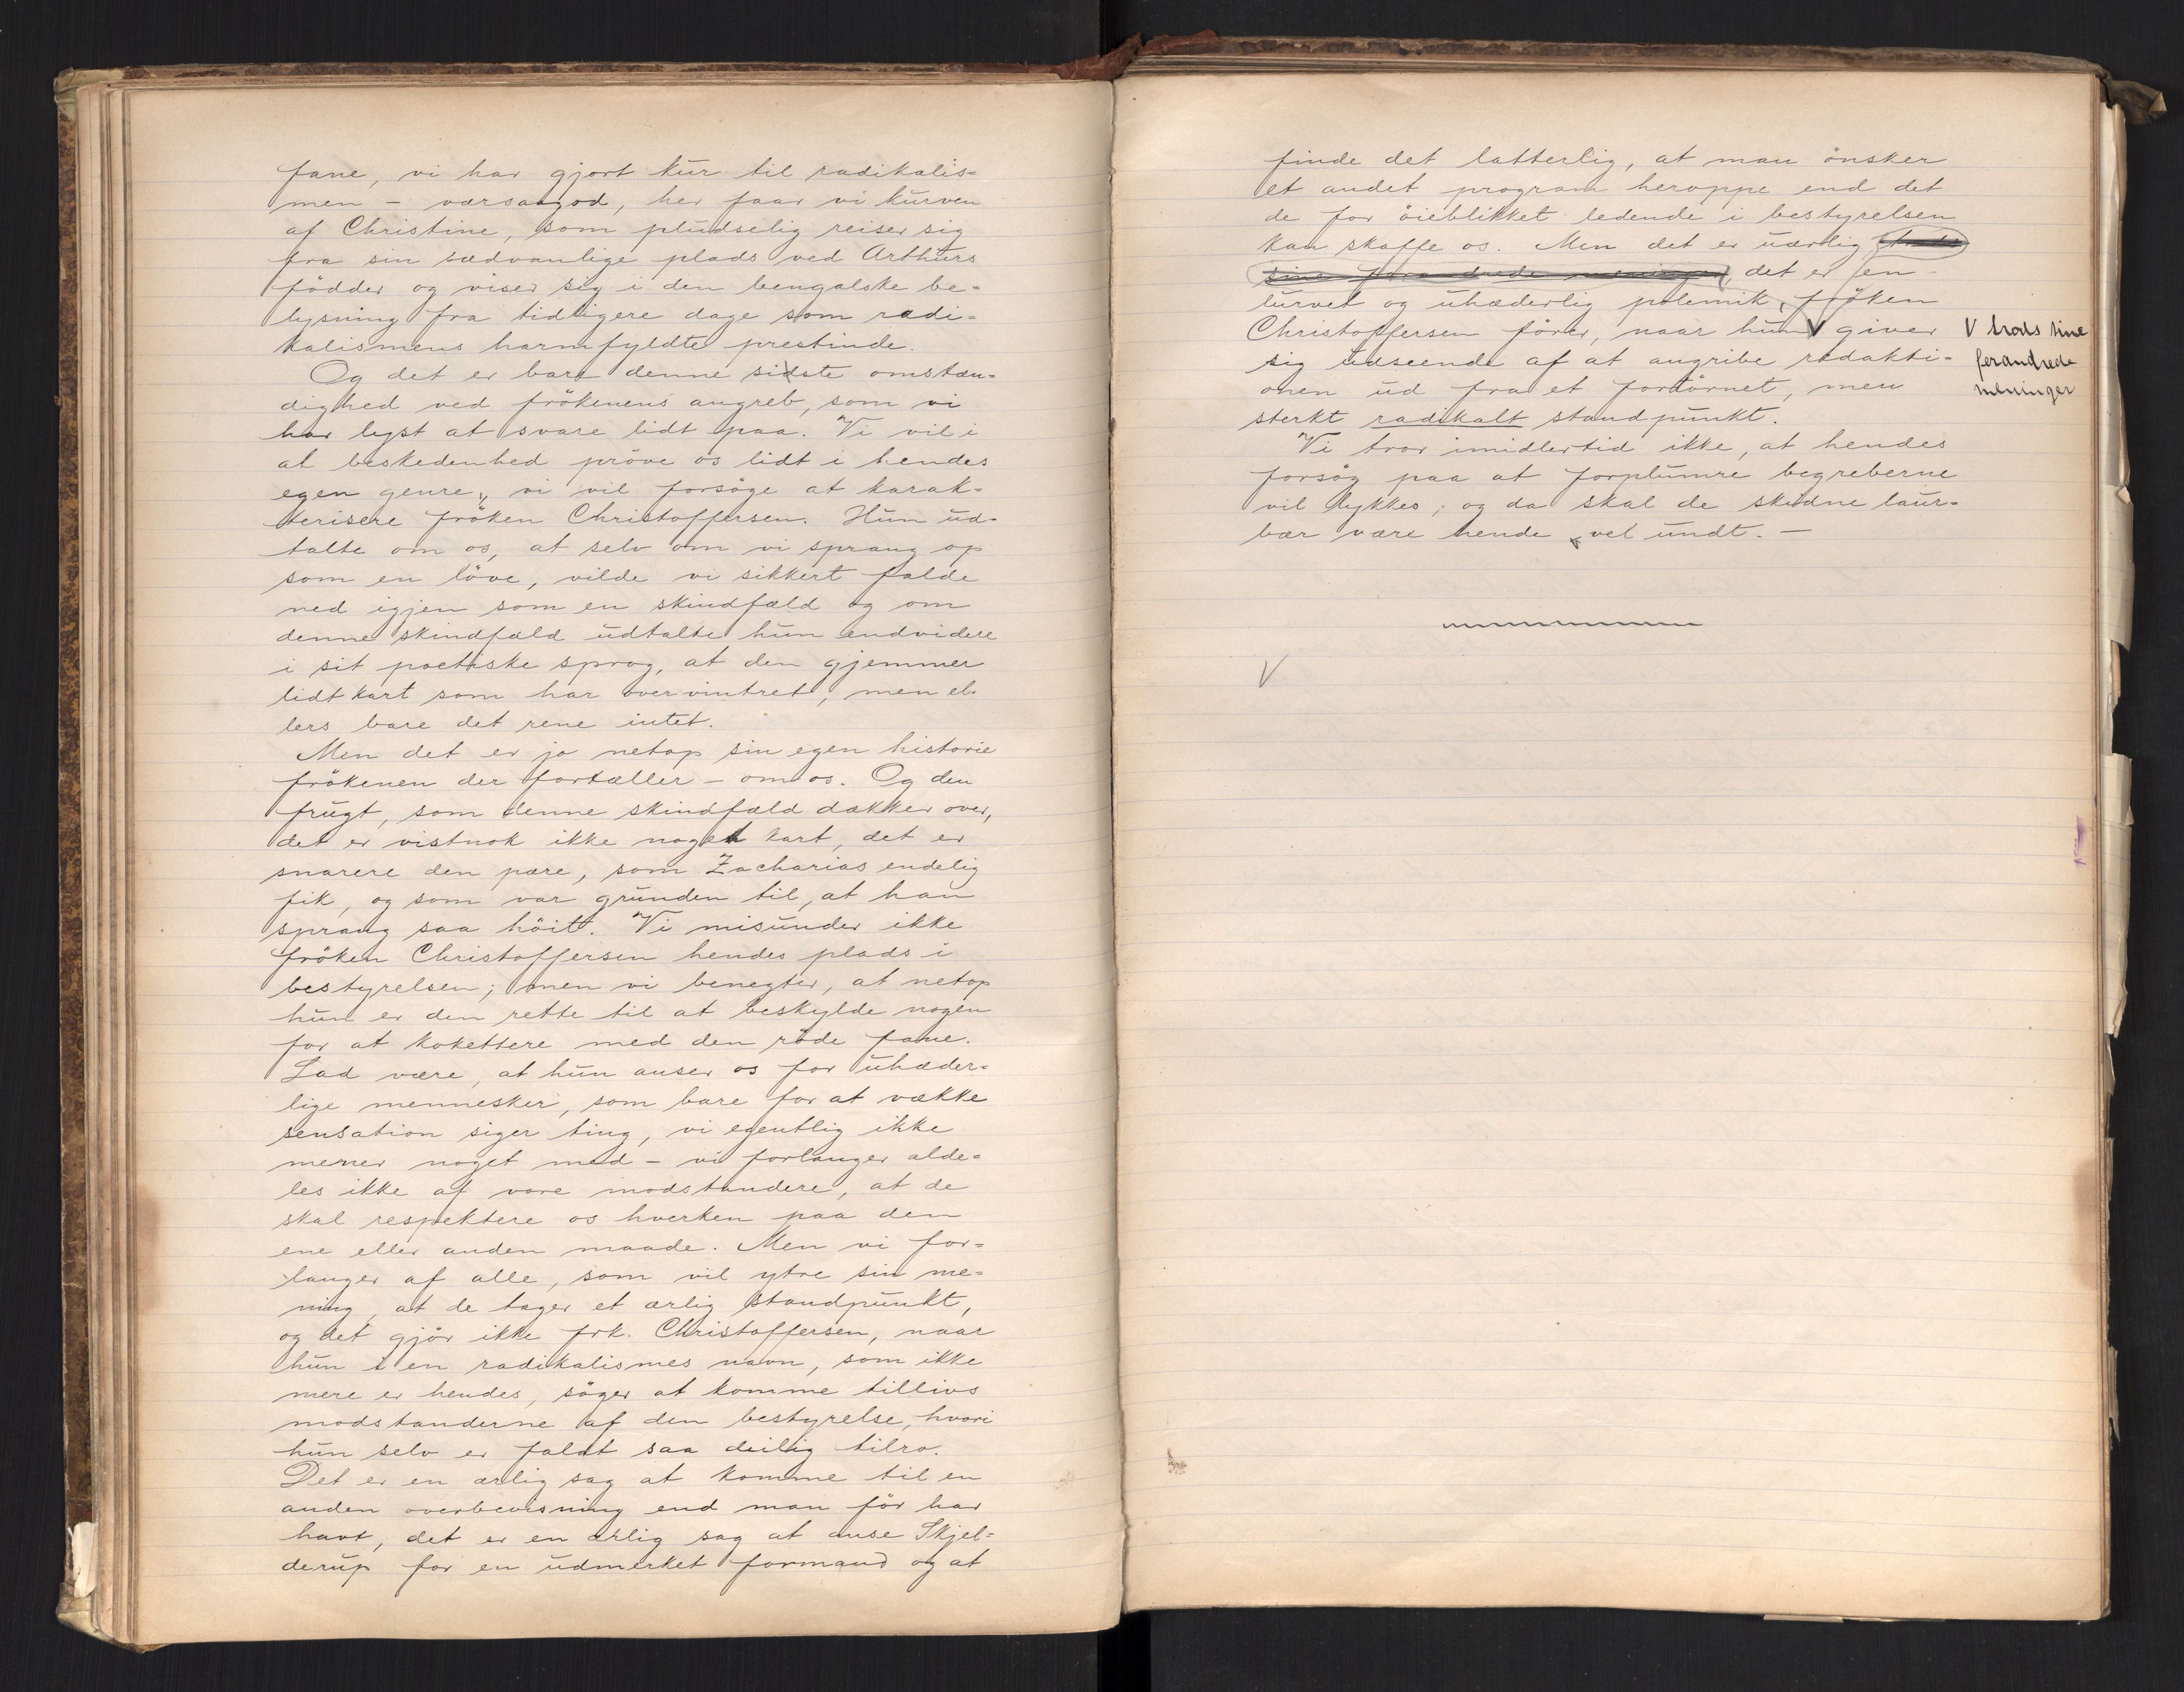 fane, vi har gjort kur til radikalis=
men - værsaagod, her faar vi kurven
af Christine, som pludselig reiser sig
fra sin sædvanlige plads ved Arthurs
födder og viser sig i den bengalske be=
lysning fra tidligere dage som radi=
kalismens harmfyldte prestinde.
Og det er bare denne sidste omstæn=
dighed ved frökenens angreb, som vi
har lyst at svare lidt paa. Vi vil i
al beskedenhed pröve os lidt i hendes
egen genre, vi vil forsöge at karak=
terisere fröken Christoffersen. Hun ud=
talte om os, at selv om vi sprang op
som en löve, vilde vi sikkert falde
ned igjen som en skindfæld og om
denne skindfæld udtalte hun endvidere
i sit poetiske sprog, at den gjemmer
lidt kart som har overvintret, men el=
lers bare det rene intet.
Men det er jo netop sin egen historie
frökenen der fortæller - om os. Og den
frugt, som denne skindfæld dækker over,
det er vistnok ikke noget kart, det er
snarere den pære, som Zacharias endelig
fik, og som var grunden til, at han
sprang saa höit. Vi misunder ikke
fröken Christoffersen hendes plads i
bestyrelsen; men vi benegter, at netop
hun er den rette til at beskylde nogen
for at kokettere med den röde fane.
Lad være, at hun anser os for uhæder=
lige mennesker, som bare for at vække
sensation siger ting, vi egentlig ikke
mener noget med - vi forlanger alde=
les ikke af vore modstandere, at de
skal respektere os hverken paa den
ene eller anden maade. Men vi for=
langer af alle, som vil ytre sin me=
ning, at de tager et ærlig standpunkt,
og det gjör ikke frk. Christoffersen, naar
hun i en radikalismes navn, som ikke
mere er hendes, söger at komme tillivs
modstanderne af den bestyrelse, hvori
hun selv er faldt saa deilig tilro.
Det er en ærlig sag at komme til en
anden overbevisning end man för har
havt, det er en ærlig sag at anse Skjel=
derup for en udmerket formand og at
finde det latterlig, at man önsker
et andet program heroppe end det
de for öieblikket ledende i bestyrelsen
kan skaffe os. Men det er uærlig, trods
sine forandrede meninger, det er en
lurvet og uhæderlig polemik, fröken
Christoffersen förer, naar hun V giver
V trods sine
forandrede
meninger
sig udseende af at angribe redakti=
onen ud fra et fortörnet, men
sterkt radikalt standpunkt.
Vi tror imidlertid ikke, at hendes
forsög paa at forplumre begreberne
vil lykkes; og da skal de skudne laur=
bær være hende vel undt. -
V